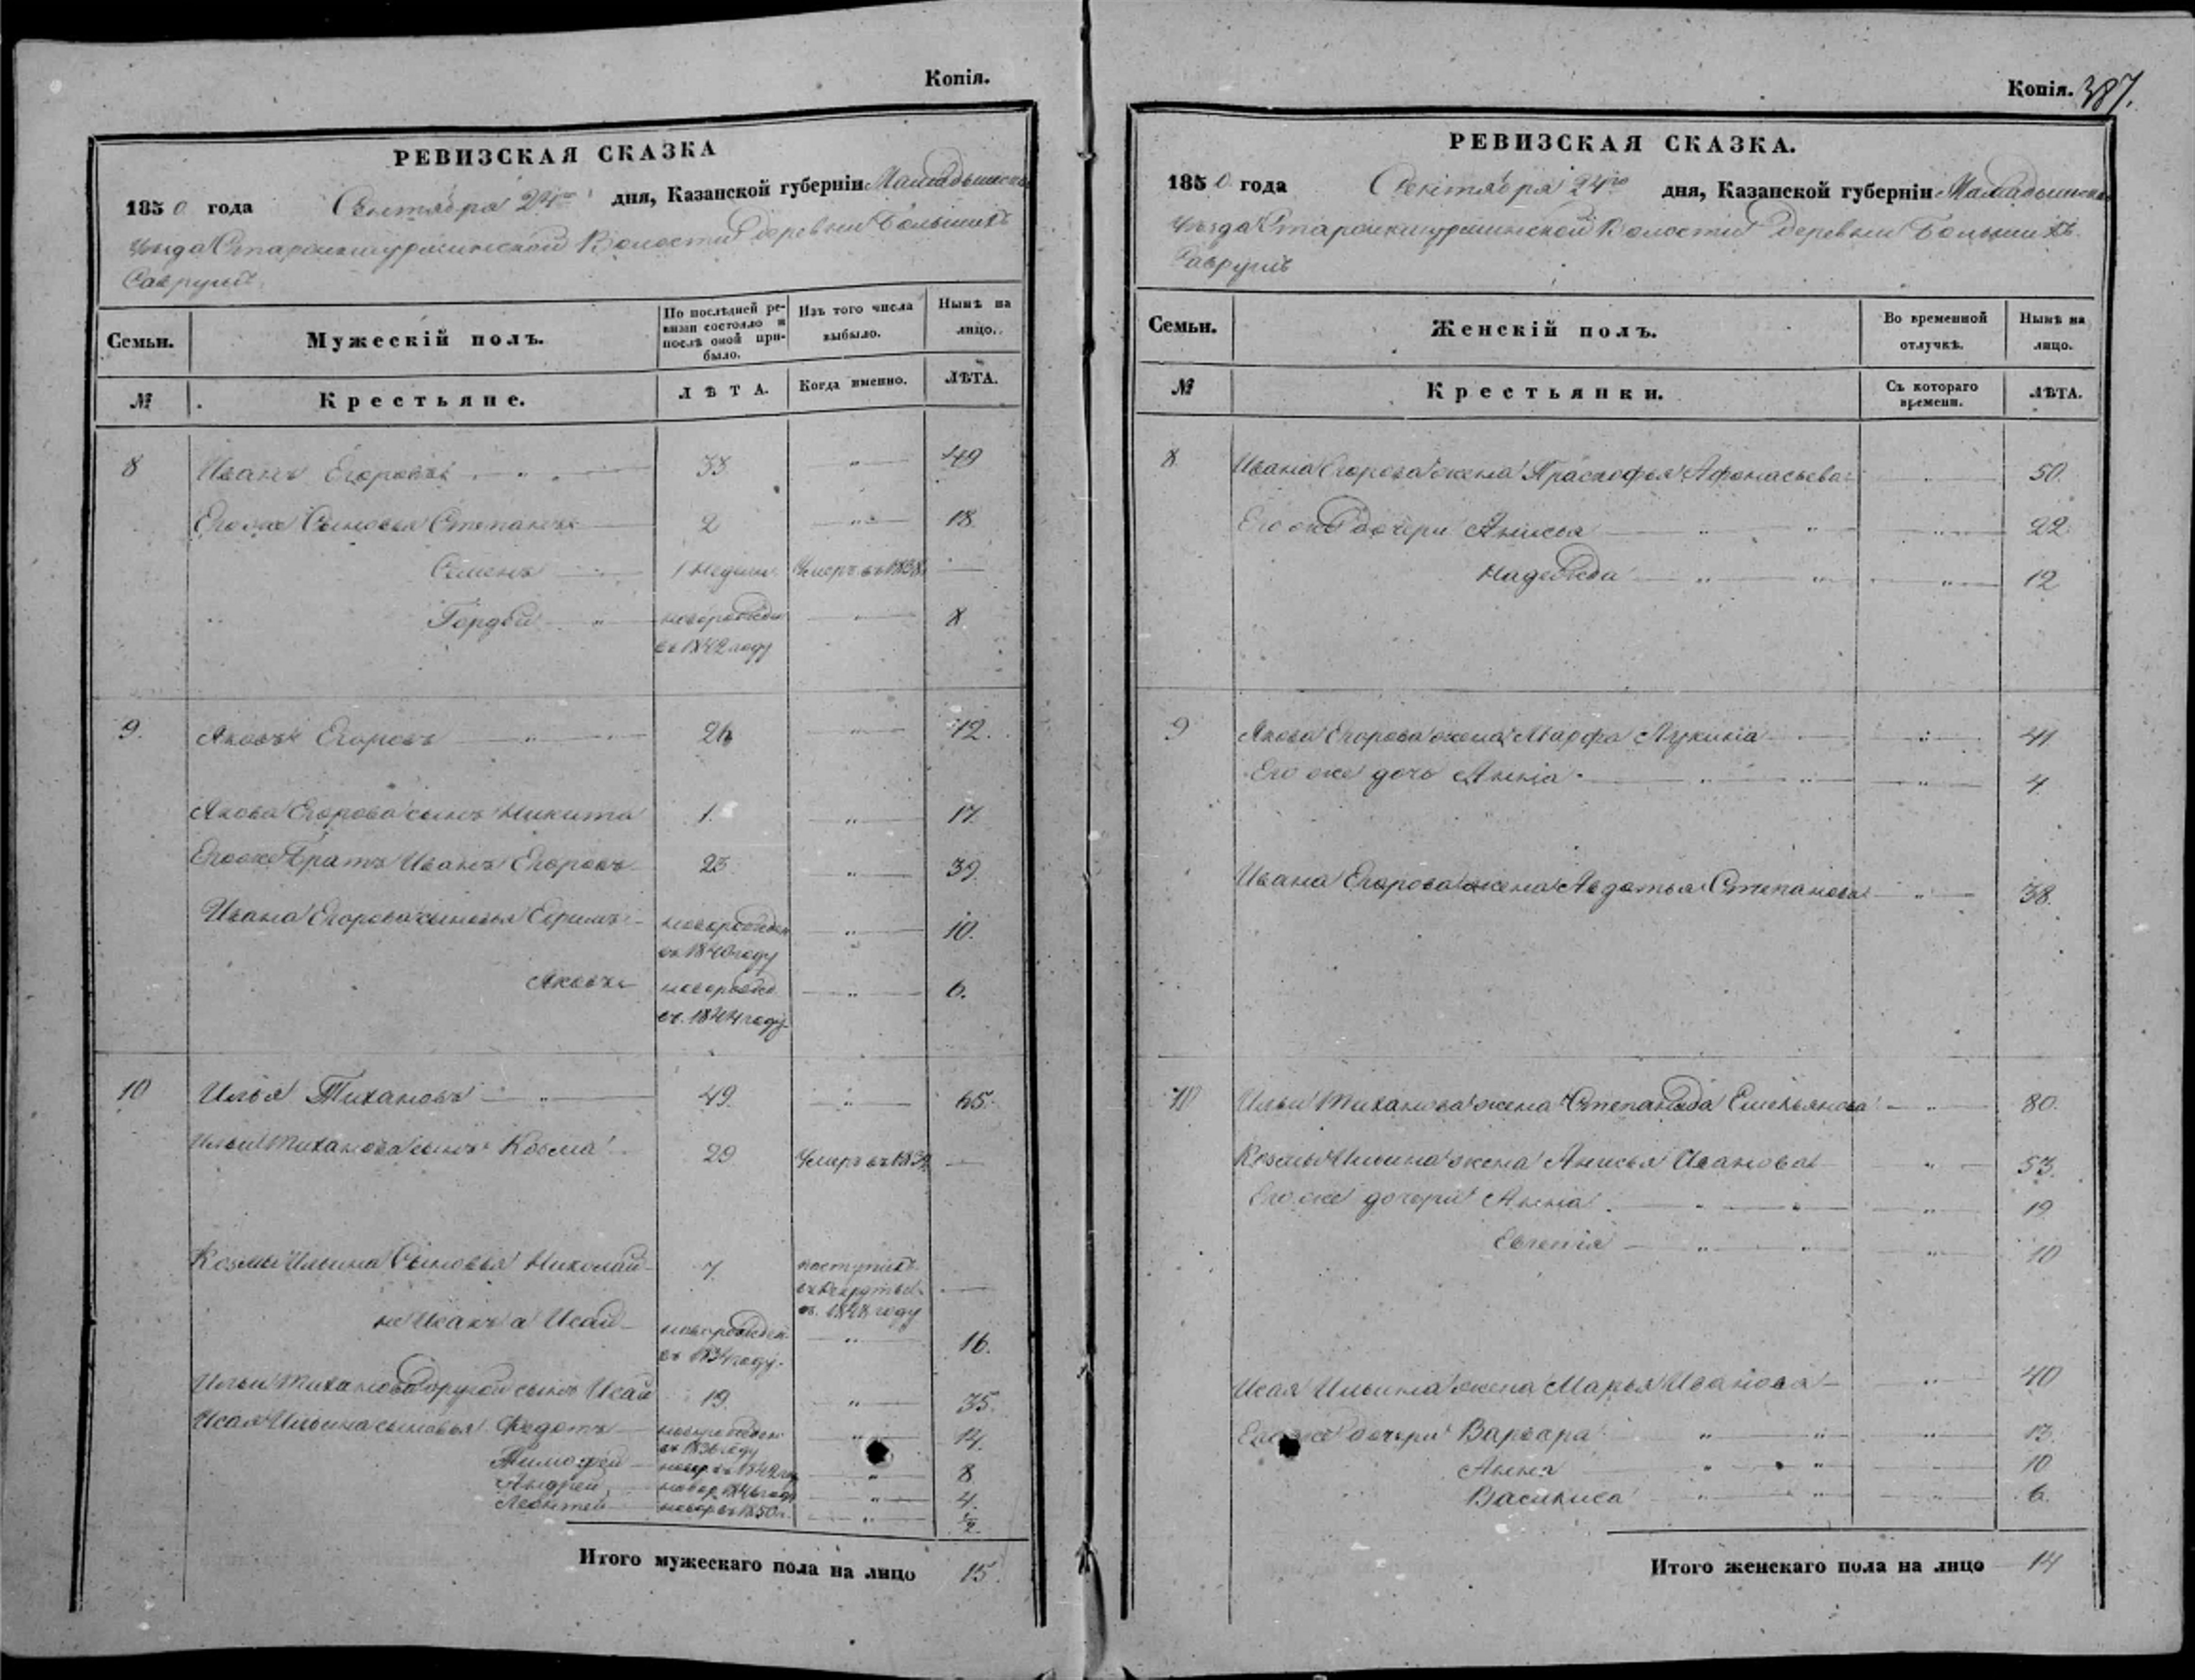 Копія.
РЕВИЗСКАЯ СКАЗКА
1850 года Сентября 24го дня, Казанской губерніи Мамадышскаго
уѣзда Волости деревни Большихъ
Саврушъ
Семьи. Мужескій полъ. По послѣдней ревизіи состояло и послѣ оной прибыло. Изъ того числа выбыло. Нынѣ на лицо.
№ Крестьяне. ЛѢТА. Когда именно. ЛѢТА.
8 Иванъ Егоровъ 33 " 49
Его же Сыновья Степанъ 2 " 18
Семенъ 1 недели Умеръ въ 1838
Гордѣй новорожден " 8
въ 1842 году
9. Яковъ Егоровъ 26 "
Якова Егорова сынъ Никита 1. " 17.
Его же братъ Иванъ Егоровъ 23 " 39
Ивана Егорова сыновья новорожден " 10.
въ 1840 году
Яковъ новорожд " 6.
въ 1844 году
10 Илья Тихановъ 49 " 65.
Ильи Тиханова сынъ Козма 29 Умеръ въ
Козмы Ильина Сыновья Николай 7. поступилъ
въ рекруты
въ 1848 году
не Исакъ а Исай новорожден " 16.
въ 1834 году
Ильи Тиханова другой сынъ Исай 19. " 35.
Исая Ильина сыновья Федотъ новорожден " 14.
въ 1836 году
Тимофей новор въ 1842 " 8
Андрей новор 1846 году " 4.
Леонтей новор въ 1850 г. " ½
Итого мужескаго пола на лицо 15.
Копія. 387.
РЕВИЗСКАЯ СКАЗКА.
1850 года Сентября 24го дня, Казанской губерніи Мамадышскаго
уѣзда Волости деревни Большихъ
Саврушъ
Семьи. Женскій полъ. Во временной отлучкѣ. Нынѣ на лицо.
№ Крестьянки. Съ котораго времени. ЛѢТА.
8. Ивана Егорова жена Прасковья Афонасьева 50.
Его же дочери Анисья " 22
Надежда " 12
9 Якова Егорова жена Марфа Лукина " 41
Его же дочь Анна " 4
Ивана Егорова жена Авдотья Степанова " 38.
10 Ильи Тиханова жена Степанида Емельянова " 80.
Козмы Ильина жена Анисья Иванова " 53.
Его же дочери Анна " 19
Евгенія " 10
Исая Ильина жена Марья Иванова " 40
Его же дочери Варвара " 13.
Анна " 10
Василиса " 6.
Итого женскаго пола на лицо 14